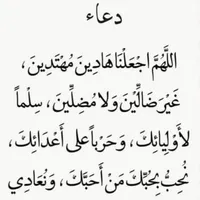 دعاء
اللَّهُمَّ اجْعَلْنَا هَادِينَ مُهْتَدِينَ،
غَيْرَ ضَالِّيْنَ وَلا مُضِلِّينَ، سِلْماً
لأَوْلِيائِكَ، وَحَرْباً على أَعْدَائِكَ،
نُحِبُّ بِحُبِّكَ مَنْ أَحَبَّكَ، وَنُعَادِي